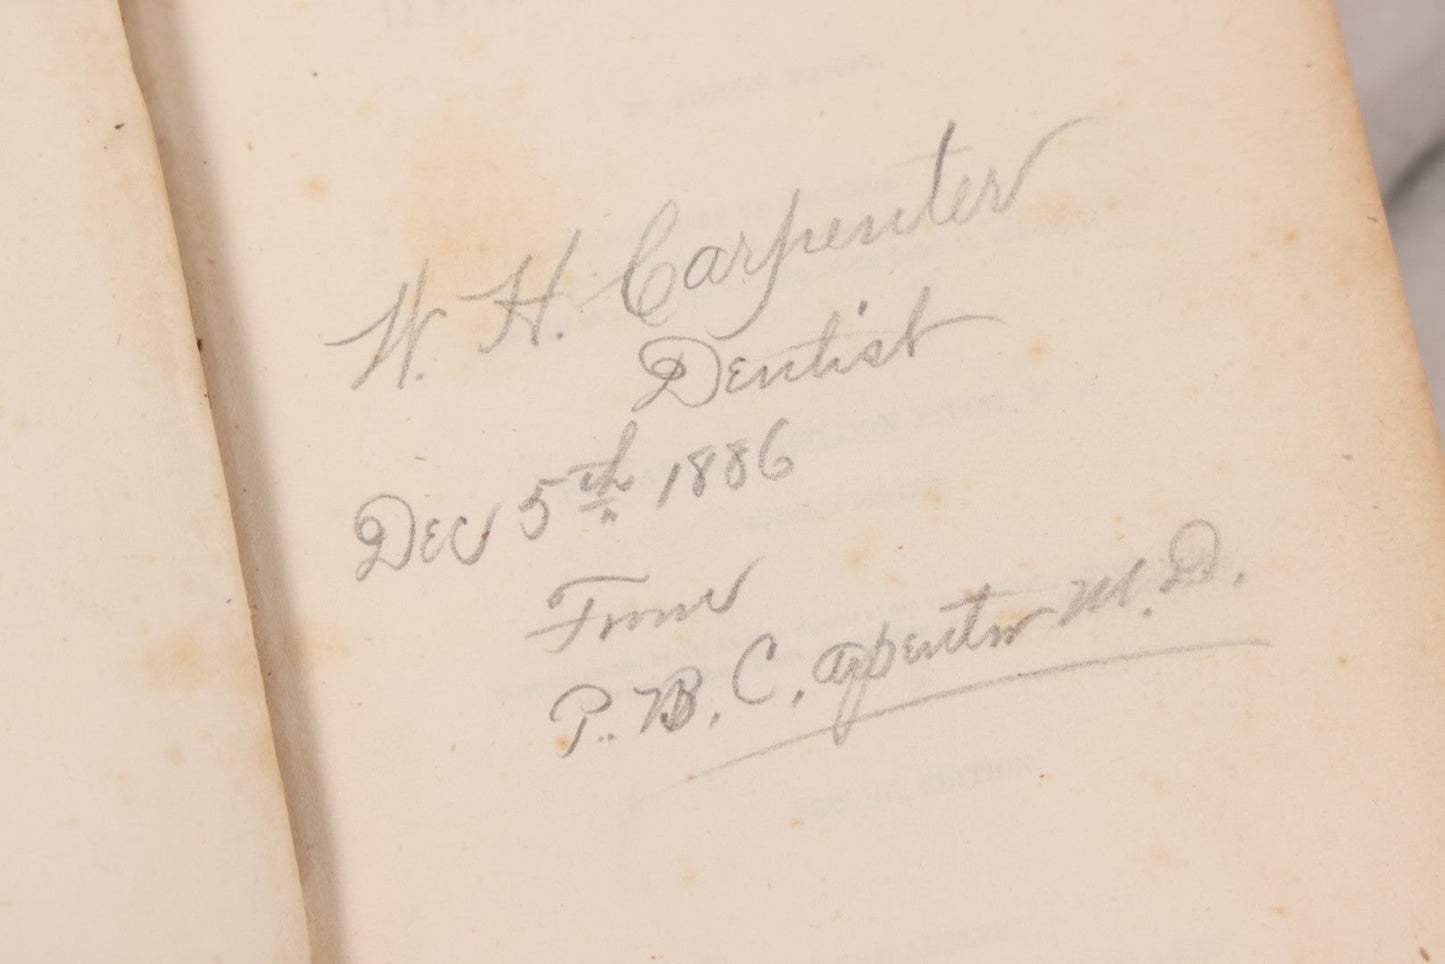 W. H. Carpenter
Dentist
Dec 5th 1886
From
P. B. Carpenter M.D.